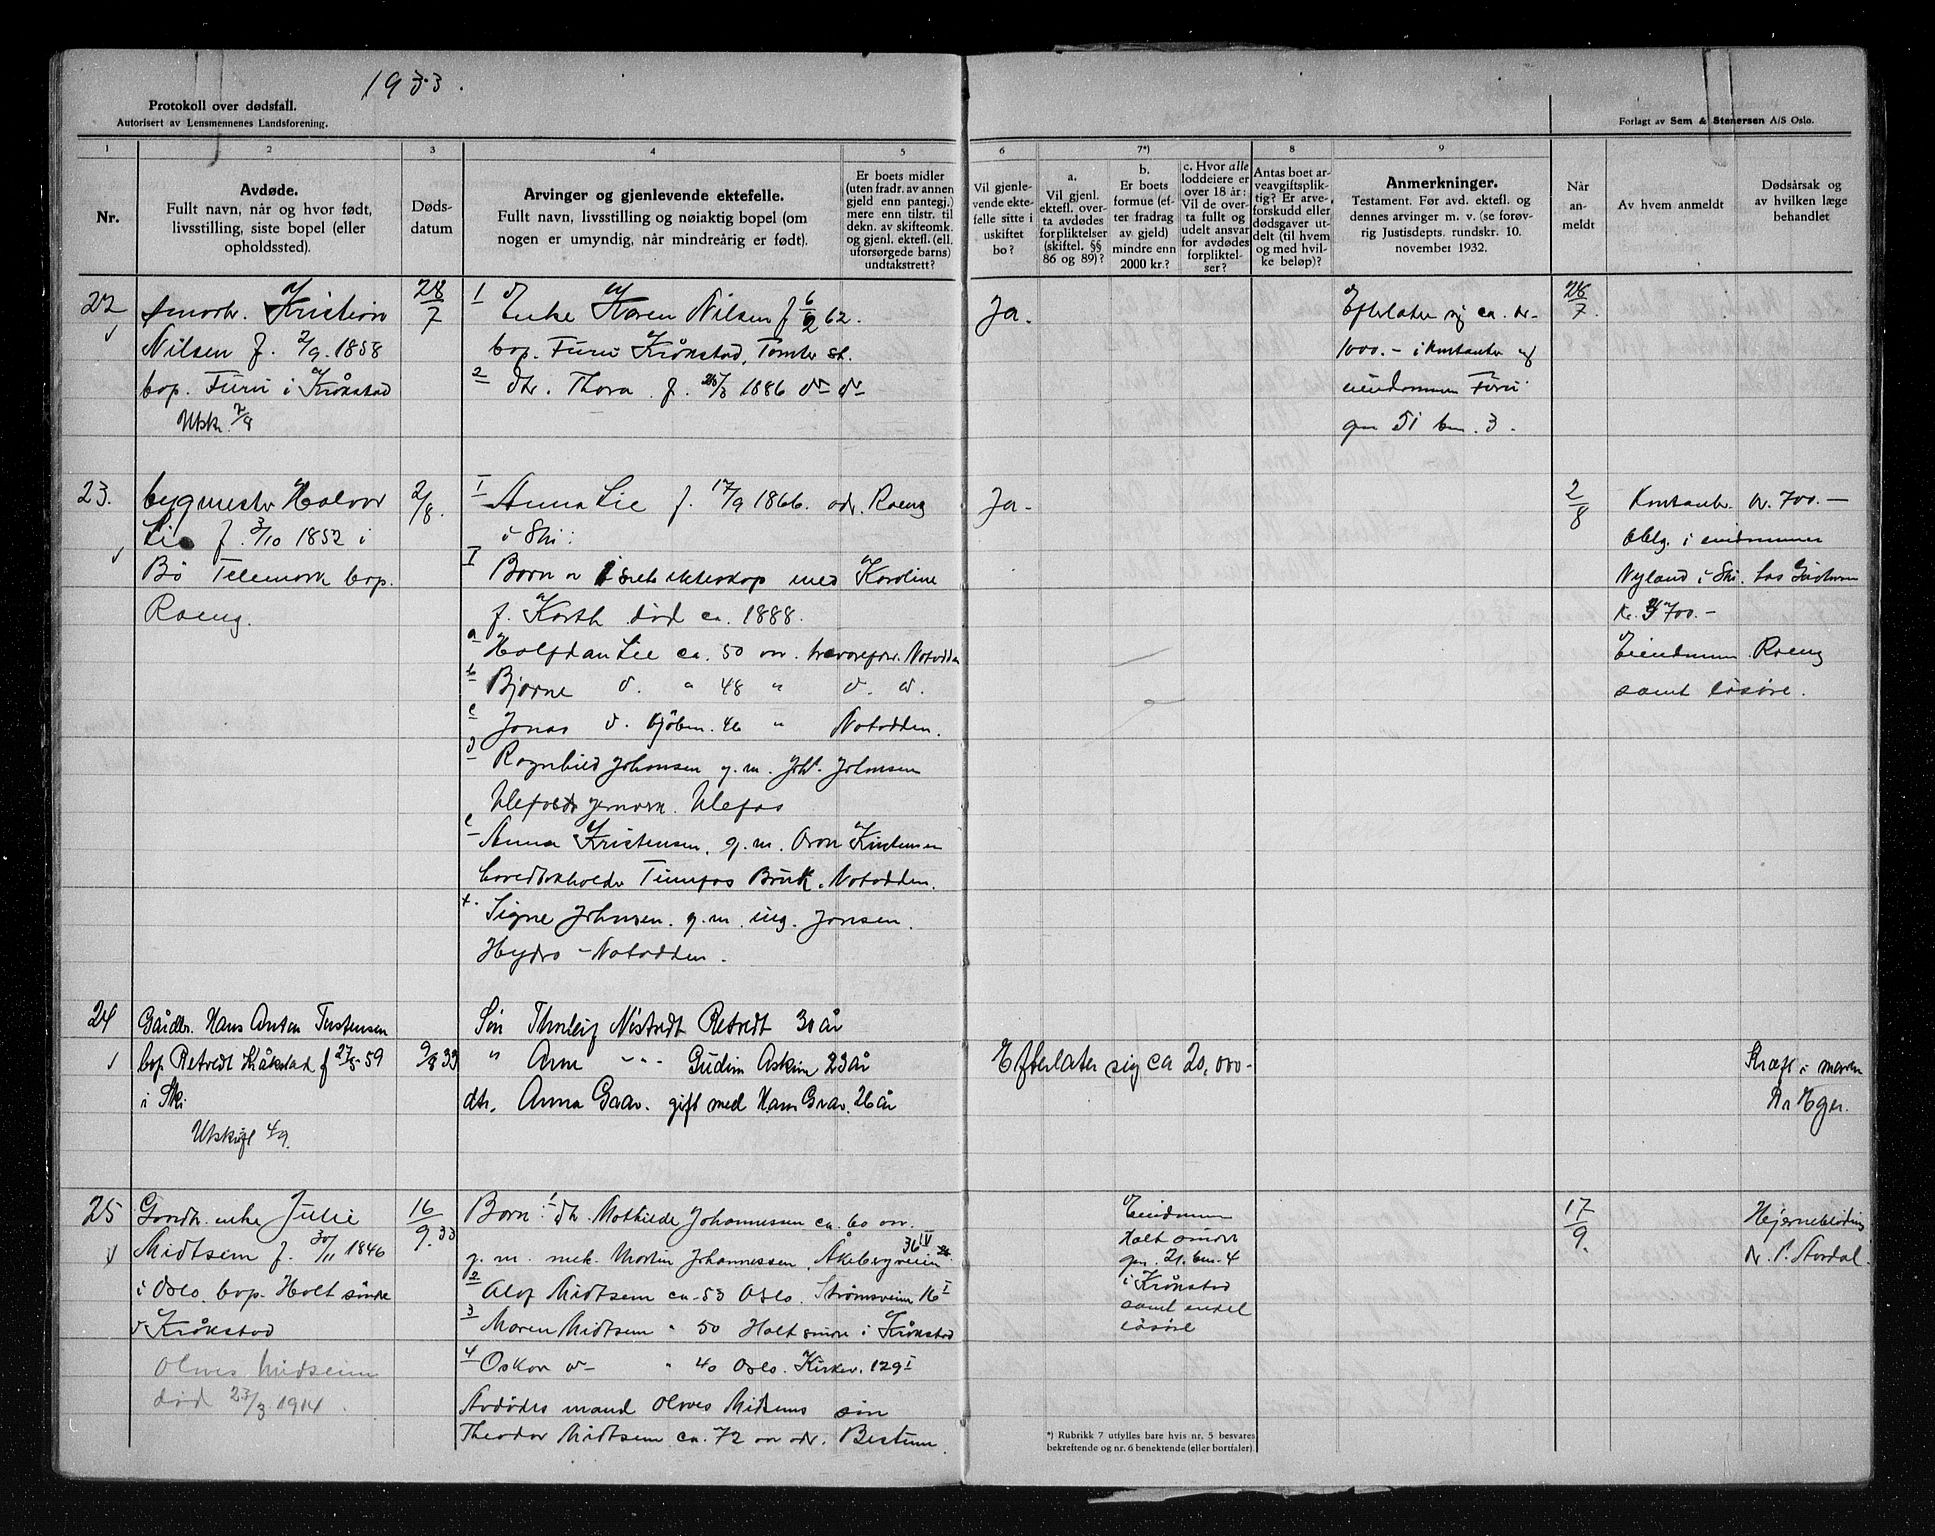 1933.
Protokoll over dødsfall.
Autorisert av Lensmennenes Landsforening.
Forlagt av Sem & Stenersen A/S Oslo.
1 2 3 4 5 6 7*) 8 9
Nr.
Avdøde.
Fullt navn, når og hvor født,
livsstilling, siste bopel (eller
opholdssted).
Døds-
datum
Arvinger og gjenlevende ektefelle.
Fullt navn, livsstilling og nøiaktig bopel (om
nogen er umyndig, når mindreårig er født).
Er boets midler
(uten fradr. av annen
gjeld enn pantegj.)
mere enn tilstr. til
dekn. av skifteomk.
og gjenl. ektefl. (ell.
uforsørgede barns)
undtakstrett?
Vil gjenle-
vende ekte-
felle sitte i
uskiftet
bo?
a.
Vil gjenl.
ektefl. over-
ta avdødes
forpliktelser
(skiftel. §§
86 og 89)?
b.
Er boets
formue (ef-
ter fradrag
av gjeld)
mindre enn
2000 kr.?
c. Hvor alle
loddeiere er
over 18 år:
Vil de over-
ta fullt og
udelt ansvar
for avdødes
forpliktel-
ser?
Antas boet ar-
veavgiftsplik-
tig? Er arve-
forskudd eller
dødsgaver ut-
delt (til hvem
og med hvil-
ke beløp)?
Anmerkninger.
Testament. Før avd. ektefl. og
dennes arvinger m. v. (se forøv-
rig Justisdepts. rundskr. 10.
november 1932.
Når
an-
meldt
Av hvem anmeldt
Dødsårsak og
av hvilken læge
behandlet
22
Kristian
Nilsen f. 2/9. 1858
bop. Furu i Kråkstad
Utskr. 7/8
28/7
1 Enke Karen Nilsen f 6/2 62.
bop. Furu Kråkstad, Tomter st.
2 dtr. Thora f. 28/3 1886 do do
Ja.
Efterlater sig ca. kr.
1000.- i kontanter og
eiendommen Furu
gnr 51 bnr. 3.
28/7.
23.
bygmester Halvor
Lie f. 3/10 1852 i
Bø Telemark bop.
Raeng.
2/8.
I Anna Lie f. 17/9 1866. adr. Raeng
i Ski.
I Barn av 1ste ekteskap med Karoline
f. Korth død ca. 1888.
a Halfdan Lie ca. 50 år. Notodden
b Bjarne d. " 48 " d. d.
c Jonas d. kjøbm. 46 " Notodden.
d Ragnhild Johansen g. m. Joh. Johansen
Ulefoss jernverk. Ulefos
e Anna Kristensen. g. m. Aron Kristensen
hovedbokholder Tinnfos Bruk. Notodden.
f. Signe Johnsen. g. m. ing. Jonsen.
Hydro - Notodden.
Ja.
2/8
Kontanter kr. 700.-
Oblg. i eiendommen
Nyland i Ski. hos
kr. 3700.-
Eiendommen Raeng
samt løsøre.
24
Gårdbr. Hans Anton Torstensen
bop Retvedt Kråkstad f 27/5-59
i Ski
Utskrift 4/9.
9/8 33
Søn Thorleif Nøstvedt Retvedt 30 år
" Arne " - " Gudim Askim 23 år
dtr. Anna Graav. gift med Hans Grav. 26 år
Efterlater sig ca 20,000-
Kræft i maven
Dr Eger.
25
Gårdbr. enke Julie
Midtsem f. 30/11 1846
i Oslo. bop. Holt søndre
i Kråkstad
Olaves Midseim
død 23/3 1914.
16/9. 33
Barn: 1 dtr. Mathilde Johannessen ca. 60 år.
g. m. mek. Martin Johannessen, Åkebergveien 36 IV
2 Olaf Midtsem ca. 53 Oslo. Strømsveien 16 I
3 Maren Midtsem " 50 Holt søndre i Kråkstad
4 Oskar d- " 40 Oslo. Kirkev. 129 I
Avdødes mand Olaves Midtsems søn
Theodor Midtsem ca. 72 år adr. Bestum.
Eiendommen
Holt søndre
gnr. 21. bnr. 4
i Kråkstad
samt endel
løsøre
17/9.
Hjerneblødning
dr. P. Stordal.
*) Rubrikk 7 utfylles bare hvis nr. 5 besvares
bekreftende og nr. 6 benektende (eller bortfaller).